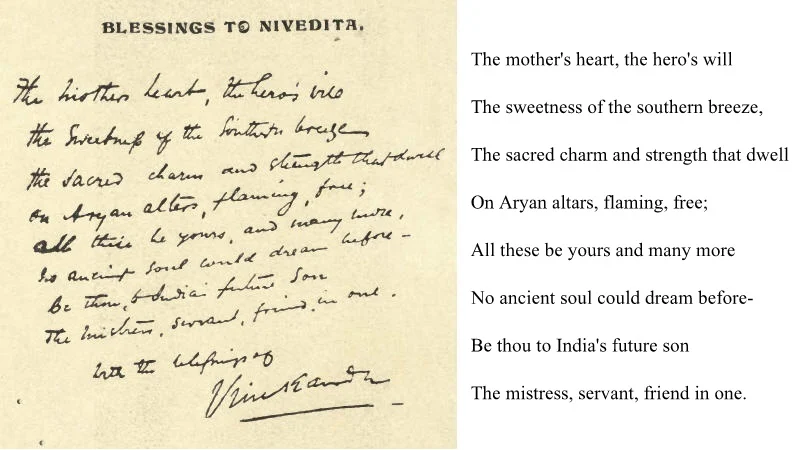 BLESSINGS TO NIVEDITA.
The mothers heart, the hero's will
the sweetness of the southern breeze
the sacred charm and strength that dwell
on Aryan alters, flaming, free;
all these be yours, and many more,
No ancient soul could dream before-
Be thou, to India's future son
The mistress, servant, friend in one.
with the blessings of
Vivekananda
The mother's heart, the hero's will
The sweetness of the southern breeze,
The sacred charm and strength that dwell
On Aryan altars, flaming, free;
All these be yours and many more
No ancient soul could dream before-
Be thou to India's future son
The mistress, servant, friend in one.